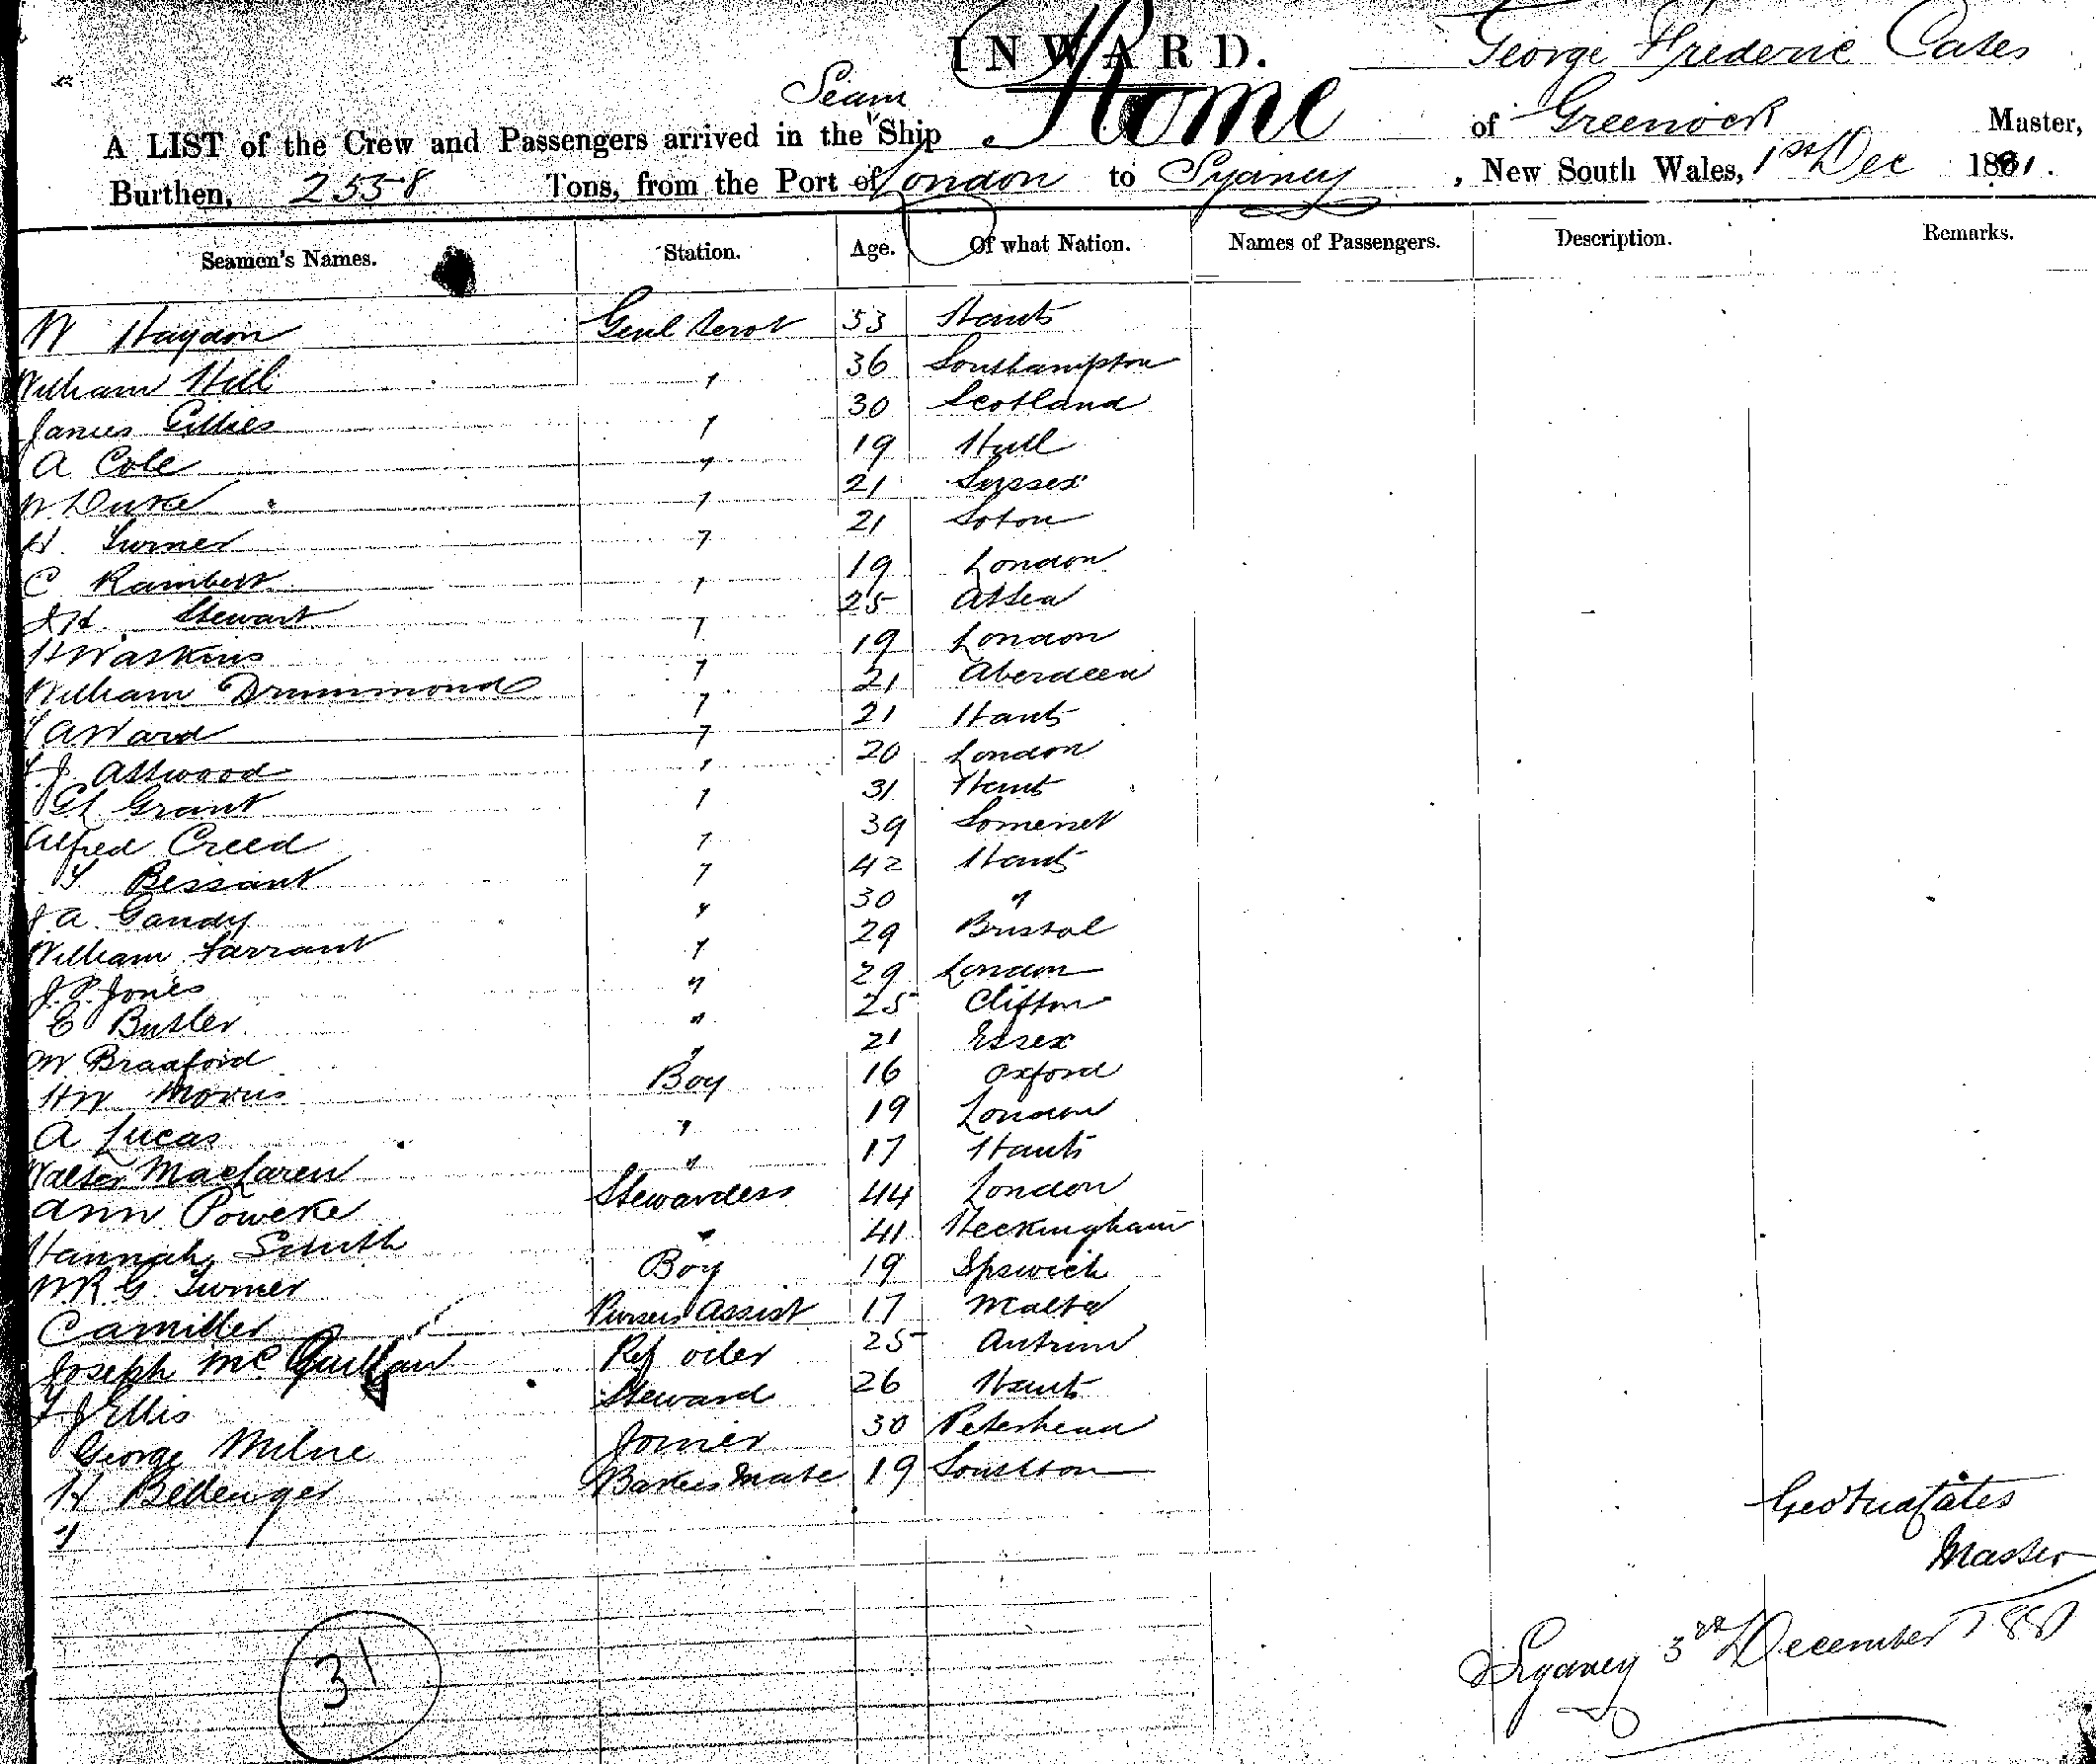 INWARD.
George Frederic Cates
Steam
A LIST of the Crew and Passengers arrived in the "Ship Rome of Greenock Master,
Burthen, 2558 Tons, from the Port of London to Sydney, New South Wales, 1st Dec 1881.
Seamen's Names. Station. Age. Of what Nation. Names of Passengers. Description. Remarks.
W Haydon Genl Servt 53 Hants
William Hill " 36 Southampton
James Gillies " 30 Scotland
A Cole " 19 Hull
W Duke " 21 Sussex
H. Turner " 21 Soton
C Rambert " 19 London
J H. Stewart " 25 At Sea
H Waskins " 19 London
William Drummond " 21 Aberdeen
A Ward " 21 Hants
F J Attwood " 20 London
G Grant " 31 Hants
Alfred Creed " 39 Somerset
T Bessant " 42 Hants
J. A. Gandy " 30 "
William Farrant " 29 Bristol
J. P. Jones " 29 London
E Butler " 25 Clifton
W Bradford " 21 Essex
H W Morris Boy 16 Oxford
A Lucas " 19 London
Walter MacLaren " 17 Hants
Ann Poweke Stewardess 44 London
Hannah Smith " 41 Heckingham
W R G. Turner Boy 19 Ipswich
Camiller Pursers Assist 17 Malta
Joseph Mc Quillan Ref oiler 25 Antrim
F J Ellis Steward 26 Hants
George Milne Joiner 30 Peterhead
H Bellenger Bakers Mate 19 Southton
"
Cates
Master
31
Sydney 3rd December 1881